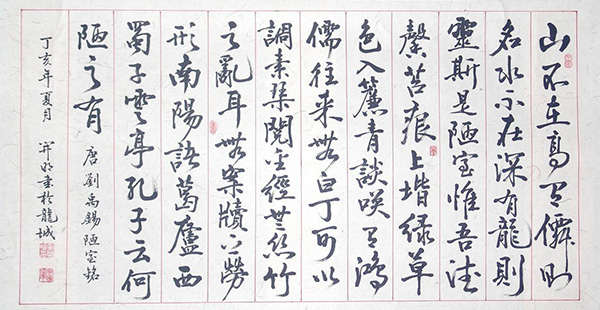 山不在高有僊則
名水不在深有龍則
靈斯是陋室惟吾德
馨苔痕上堦緑草
色入簾青談咲有鴻
儒往来無白丁可以
調素琴閲金經無絲竹
之亂耳無案牘之勞
形南陽諸葛廬西
蜀子雲亭孔子云何
陋之有
唐劉禹錫陋室銘
丁亥年夏月 書於龍城